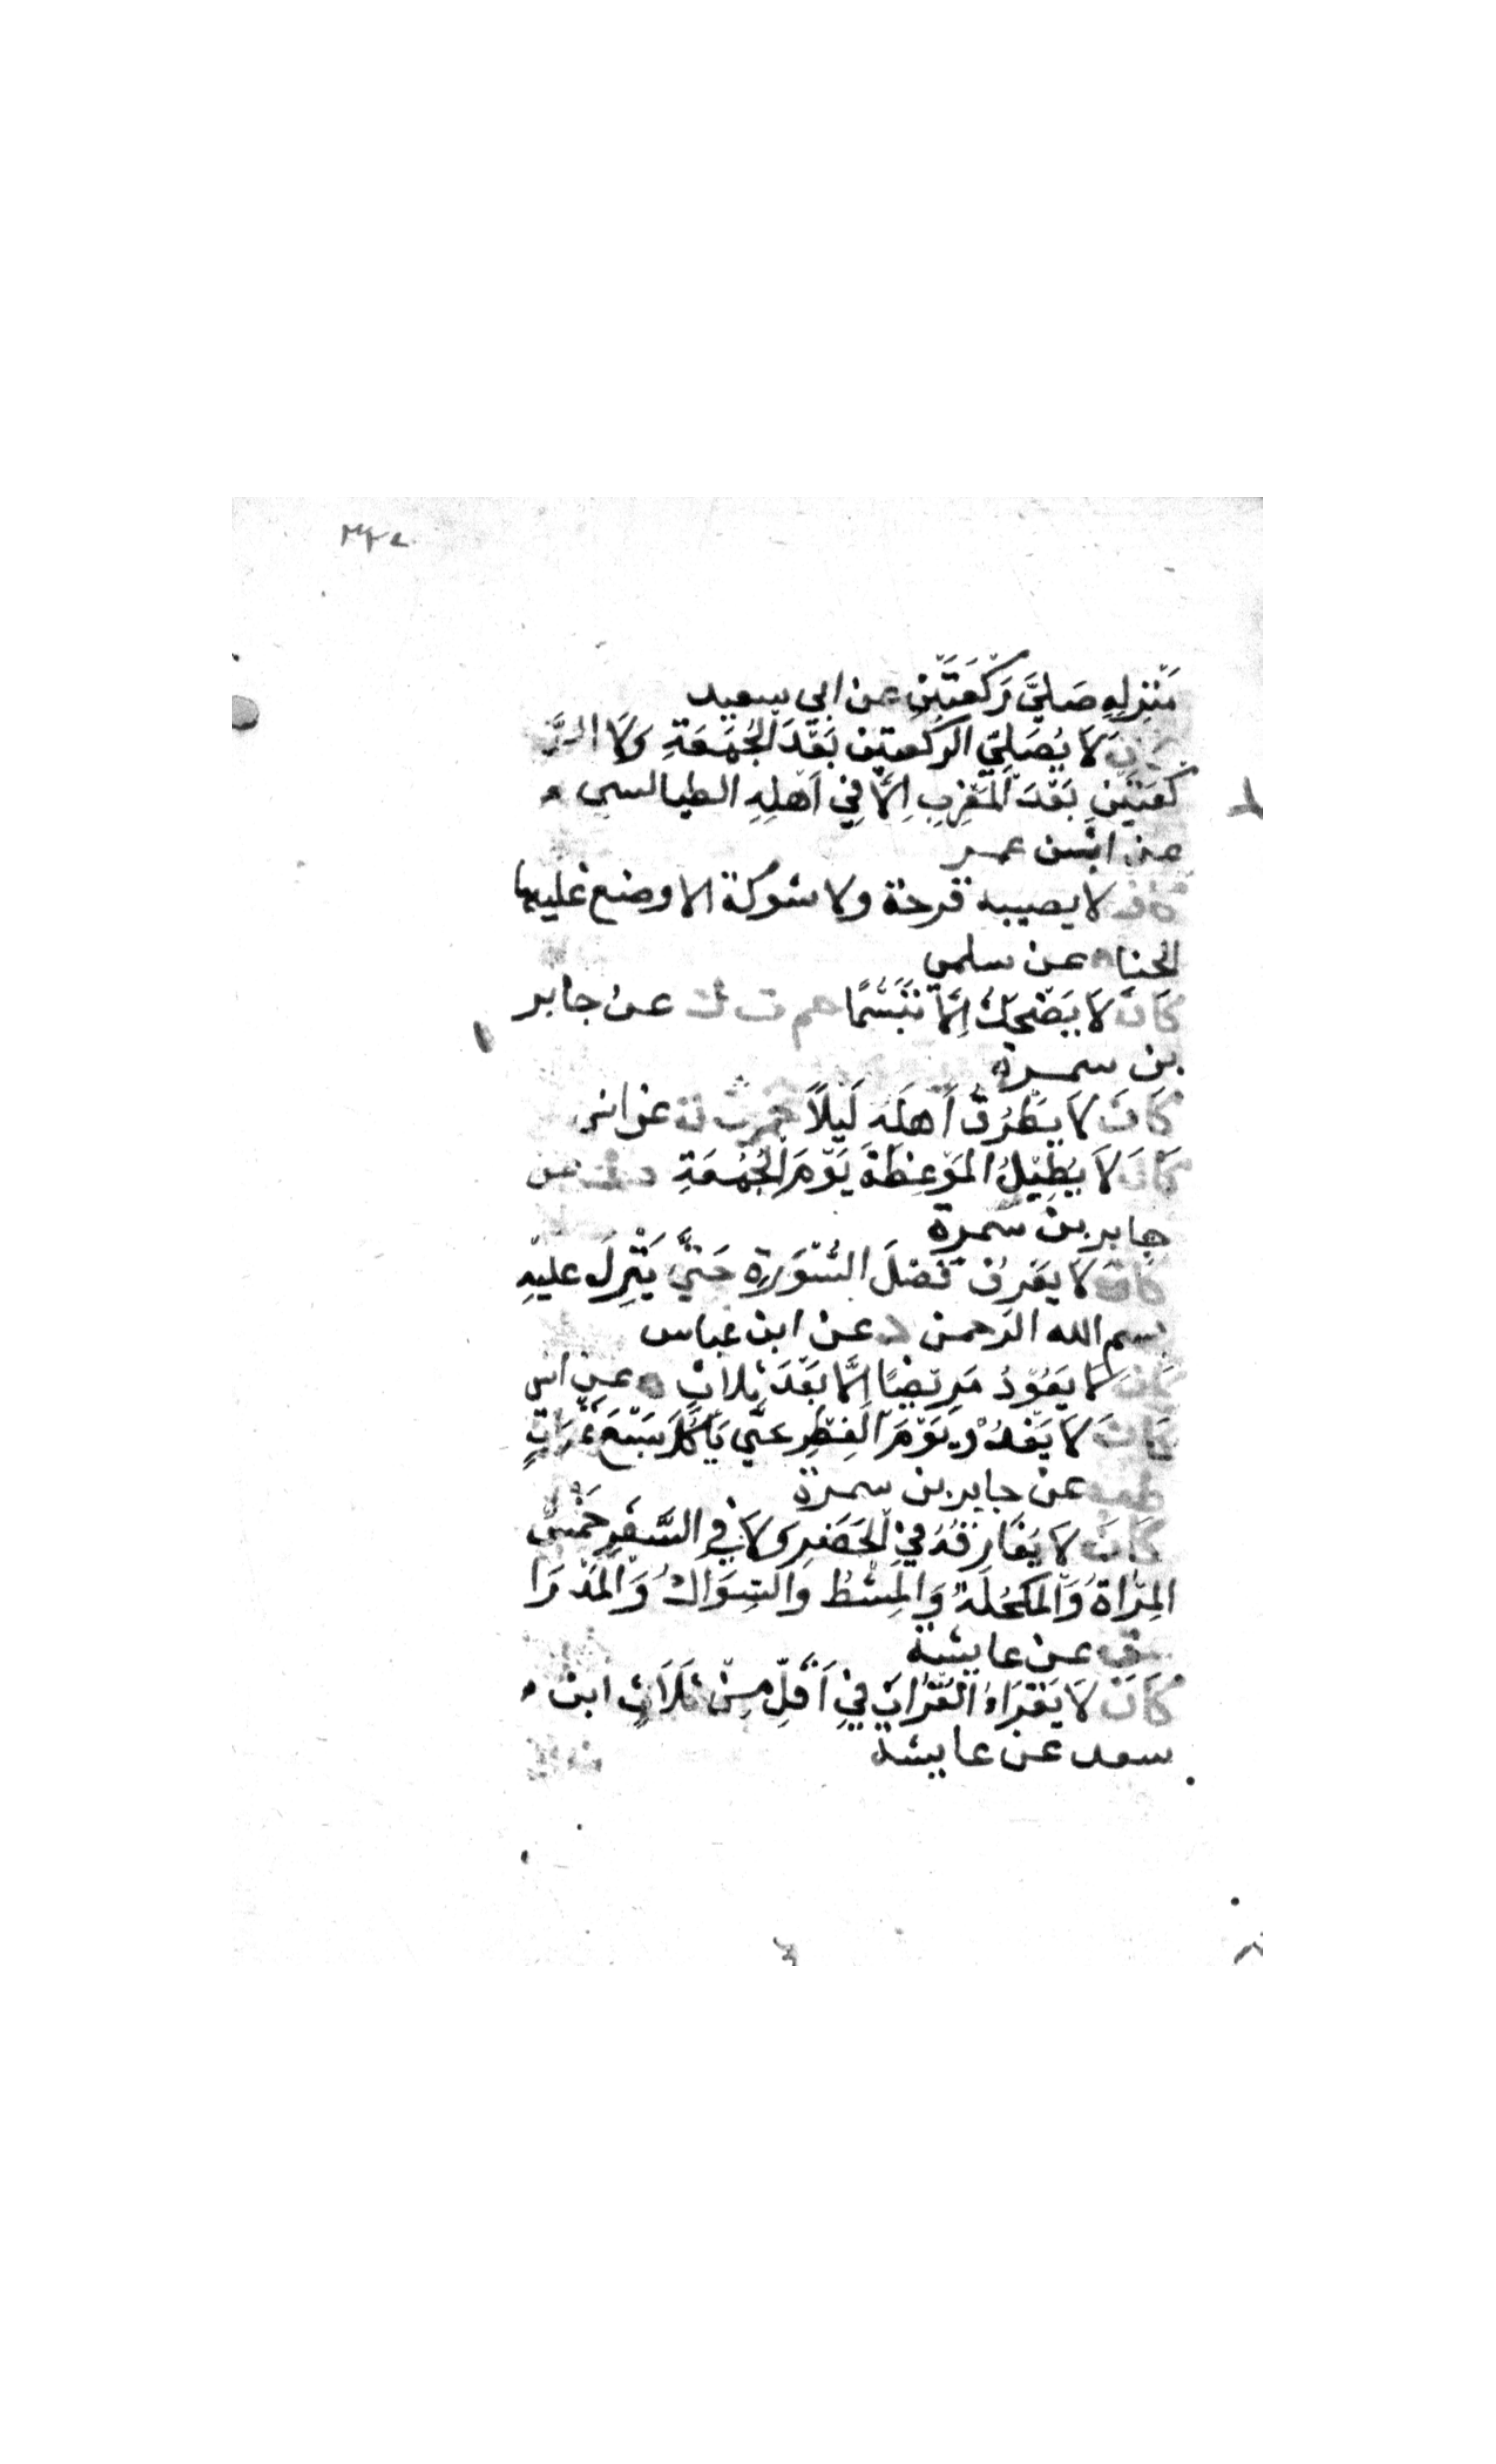 مَنْزِلِهِ صَلَّيَ رَكْعَتَيْنِ عن ابي سعيد
كَانَ لَا يُصَلِّي الركعتين بَعْدَ الْجُمُعَةِ وَلَا الرَّ
كْعَتَيْنِ بَعْدَ الْمَغْرِبِ اِلَّا فِي اَهْلِهِ الطيالسي
عن ابن عمر
كان لا يصيبه قرحة ولا شوكة الا وضع عليها
الحنا ه عن سلمي
كَانَ لَا يَضْحَكُ اِلَّا تَبَسُّمًا حم ت ك عن جابر
بن سمرة
كَانَ لَا يَطْرُقُ اَهْلَهُ لَيْلًا حم ق ن عن انس
كَانَ لَا يُطِيْلُ الْمَوْعِظَةَ يَوْمَ الْجُمُعَةِ د ك عن
جابر بن سمرة
كان لَا يَعْرِفُ فَصْلَ السُّوْرَةِ حَتَّي يَنْزِلَ عليهِ
بسم الله الرحمن د عن ابن عباس
كان لَا يَعُوْدُ مَرِيْضًا اِلَّا بَعْدَ ثلاثٍ ه عن انس
كَانَ لَا يَغْدُوْ يَوْمَ الْفِطْرِ حَتَّي يَأْكُلَ سَبْعَ تَمَرَاتٍ
طب عن جابر بن سمرة
كَانَ لَا يُفَارِقُهُ فِي الْحَضَرِ وَلَا فِي السَّفَرِ خَمْسٌ
الْمِرْاةُ وَالْمُكْحُلَةُ وَالْمِشْطُ وَالسِّوَاكُ وَالْمِدْرَا
عق عن عايشة
كَانَ لَا يَقْرَاءُ الْقُرْاٰنَ فِي اَقَلَّ مِنْ ثَلَاثٍ ابن
سعد عن عايشة